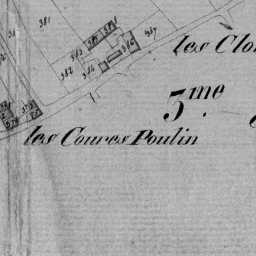 381
les Clo
382
384
386
387
5.me
les Coures Poulin